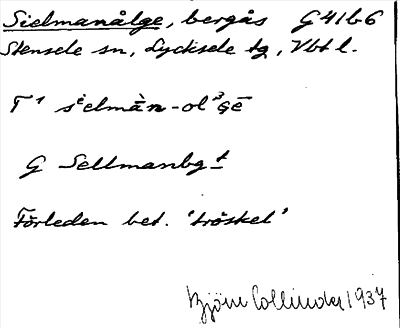 Sielmanålge, bergås G41b6
Stensele sn, Lycksele tg, Vbt l.
T¹ sielmàn-ol³gē
G Sellmanbgt
Förleden bet. 'tröskel'
Björn Collinder 1937